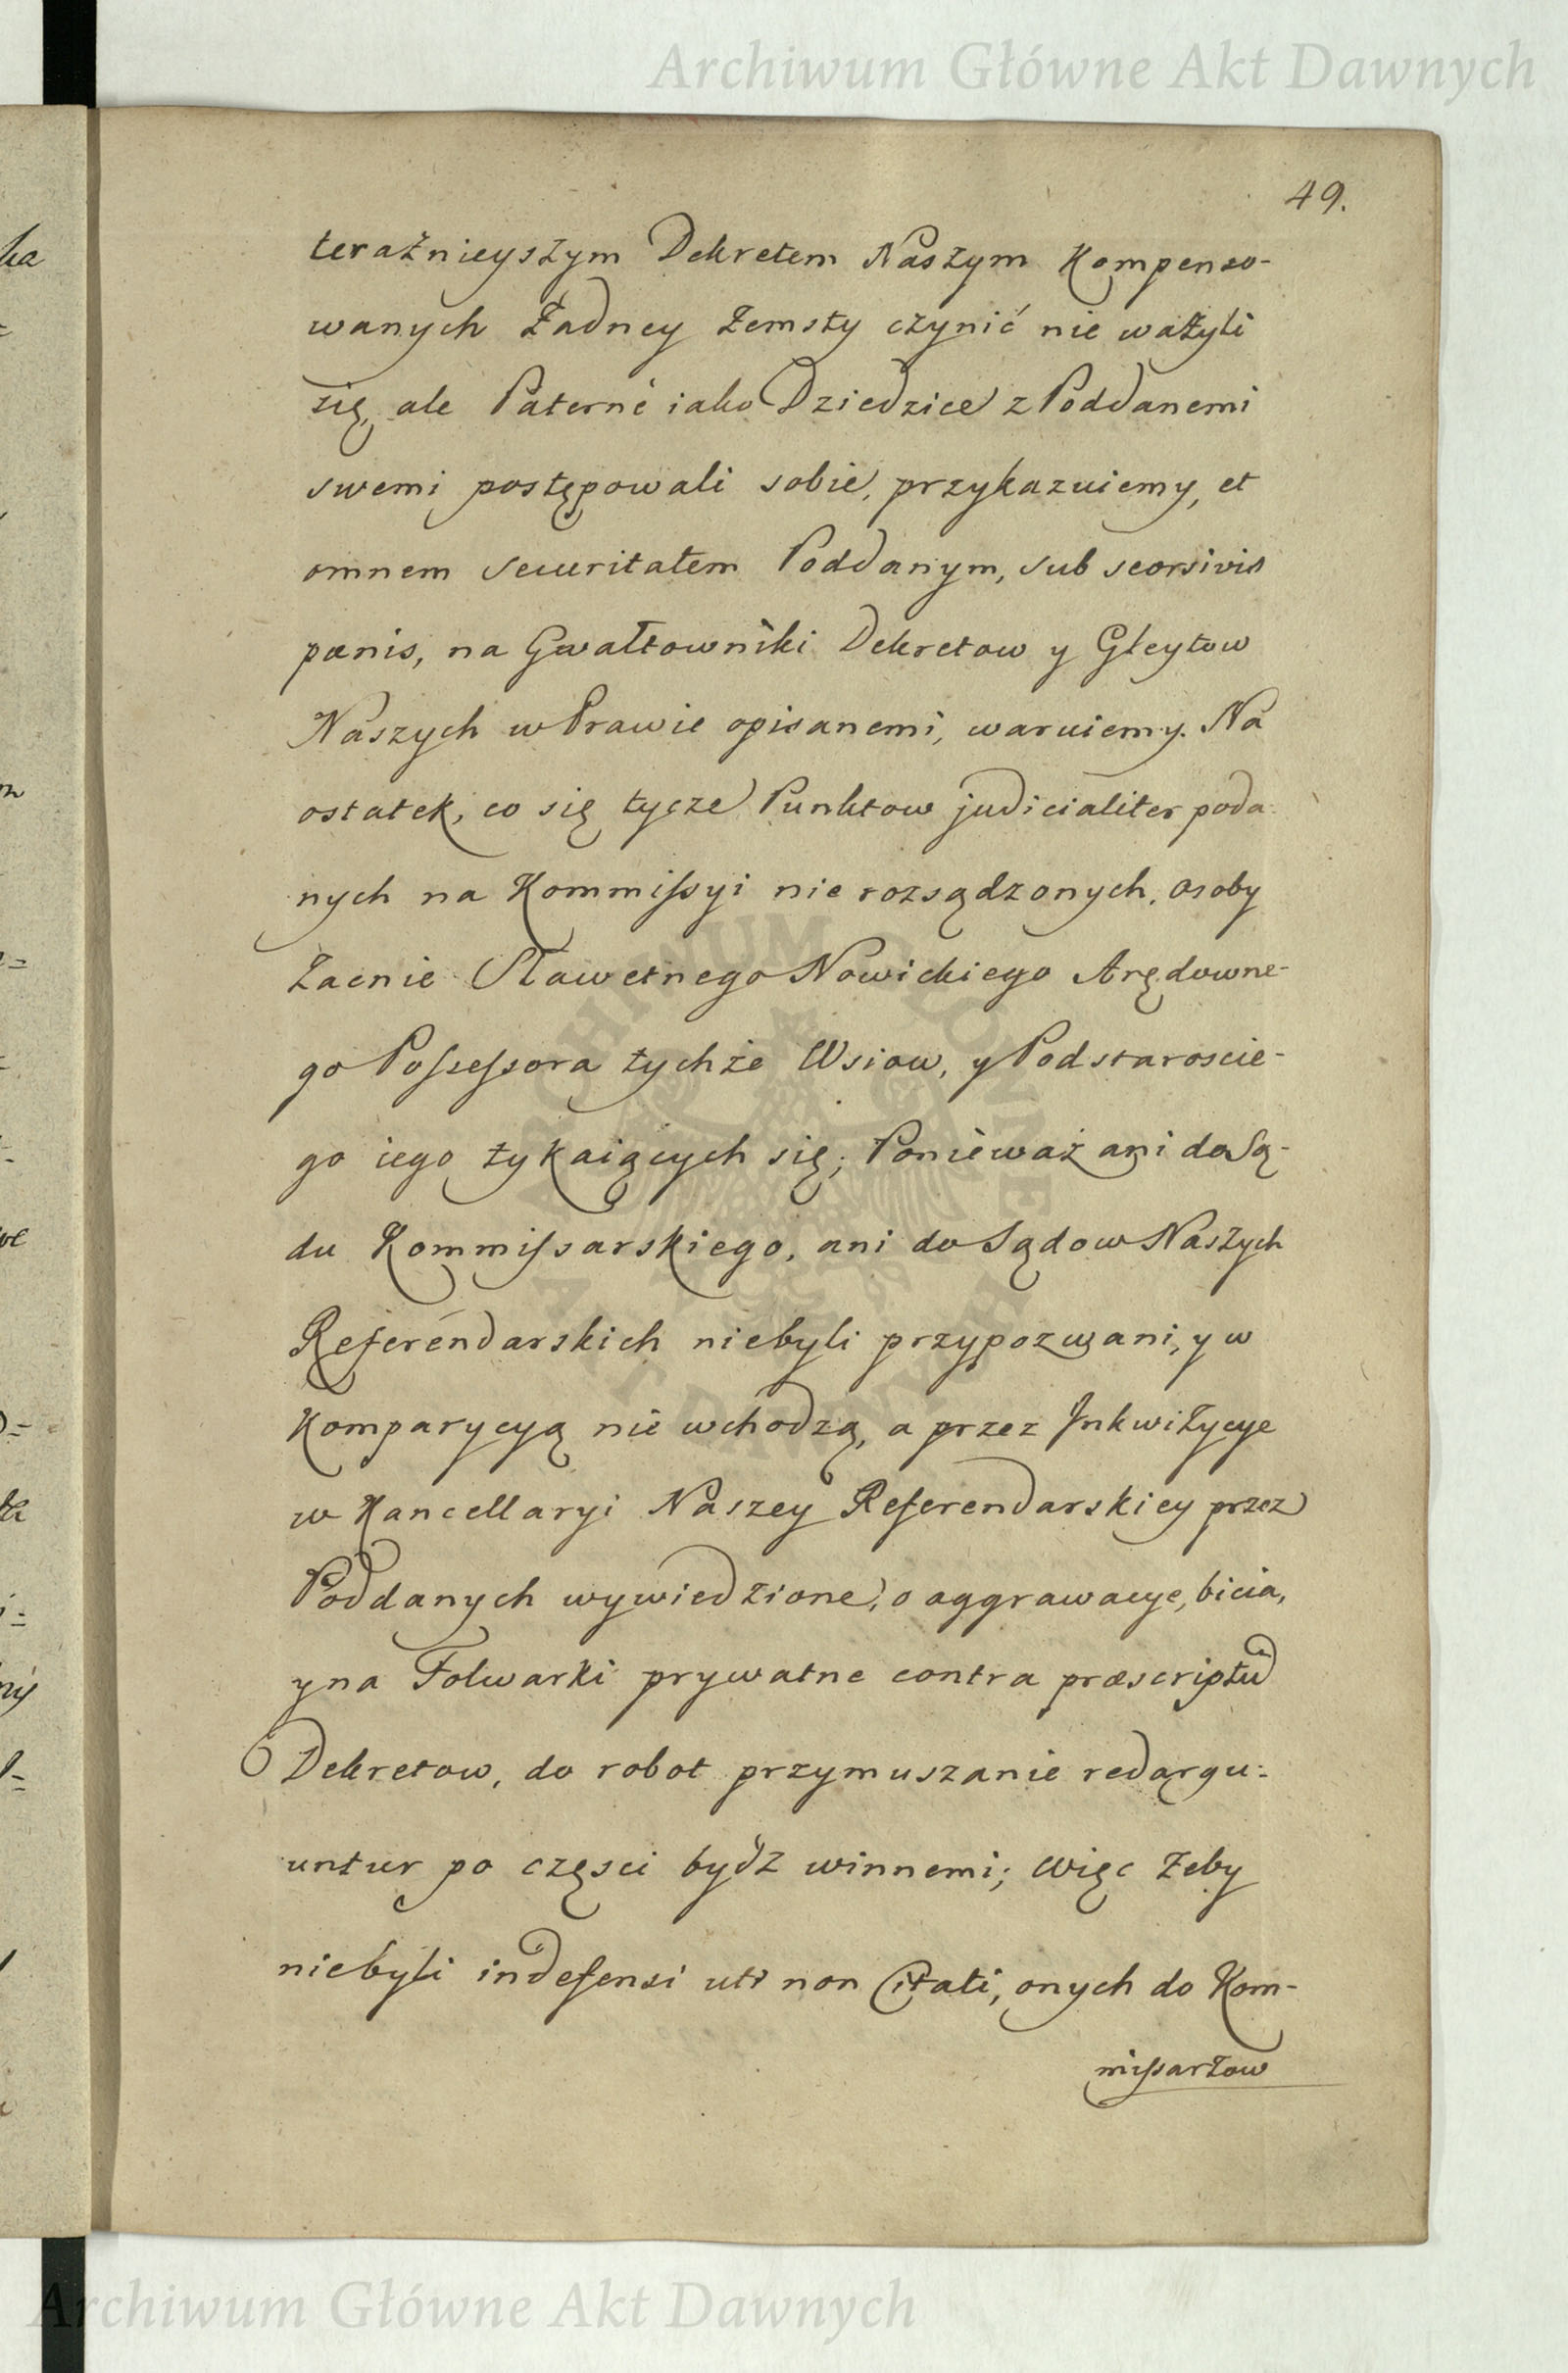 Archiwum Główne Akt Dawnych
49.
teraźnieyszym Dekretem Naszym Kompenso-
wanych Żadney Zemsty czynić nie ważyli
się, ale Paternè iako Dziedzice z Poddanemi
swemi postępowali sobie, przykazuiemy, et
omnem securitatem Poddanym, sub seorsivis
pœnis, na Gwałtowniki Dekretow y Gleytow
Naszych w Prawie opisanemi, waruiemy. Na
ostatek, co się tycze Punktow judicialiter poda
nych na Kommissyi nie rozsądzonych, osoby
Zacnie Sławetnego Nowickiego Arędowne-
go Possessora tychże Wsiow, y Podstaroscie-
go iego tykaiących się; Ponieważ ani do Są-
du Kommissarskiego, ani do Sądow Naszych
Referendarskich niebyli przypozwani, y w
Komparycyą nie wchodzą, a przez Inkwizycye
w Kancellaryi Naszey Referendarskiey przez
Poddanych wywiedzione, o aggrawacye, bicia,
y na Folwarki prywatne contra præscriptū
Dekretow, do robot przymuszanie redargu-
untur po częsci bydź winnemi; więc żeby
niebyli indefensi uti non Citati, onych do Kom-
missarzow
ARCHIWUM GŁÓWNE AKT DAWNYCH
Archiwum Główne Akt Dawnych